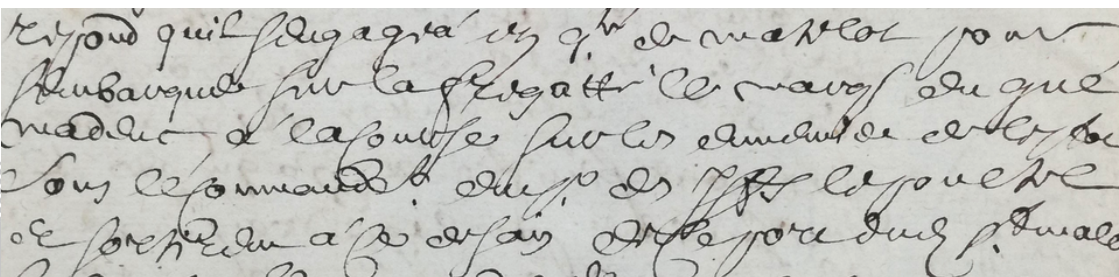 respond quil sengagea en q.te de matelot pour
sembarquer sur la fregatte le marqs du gué
madeuc a la course sur les ennemis de lestat
sous le commandemt du sr des
et sortirent a ce dessain de ce port dud st malo